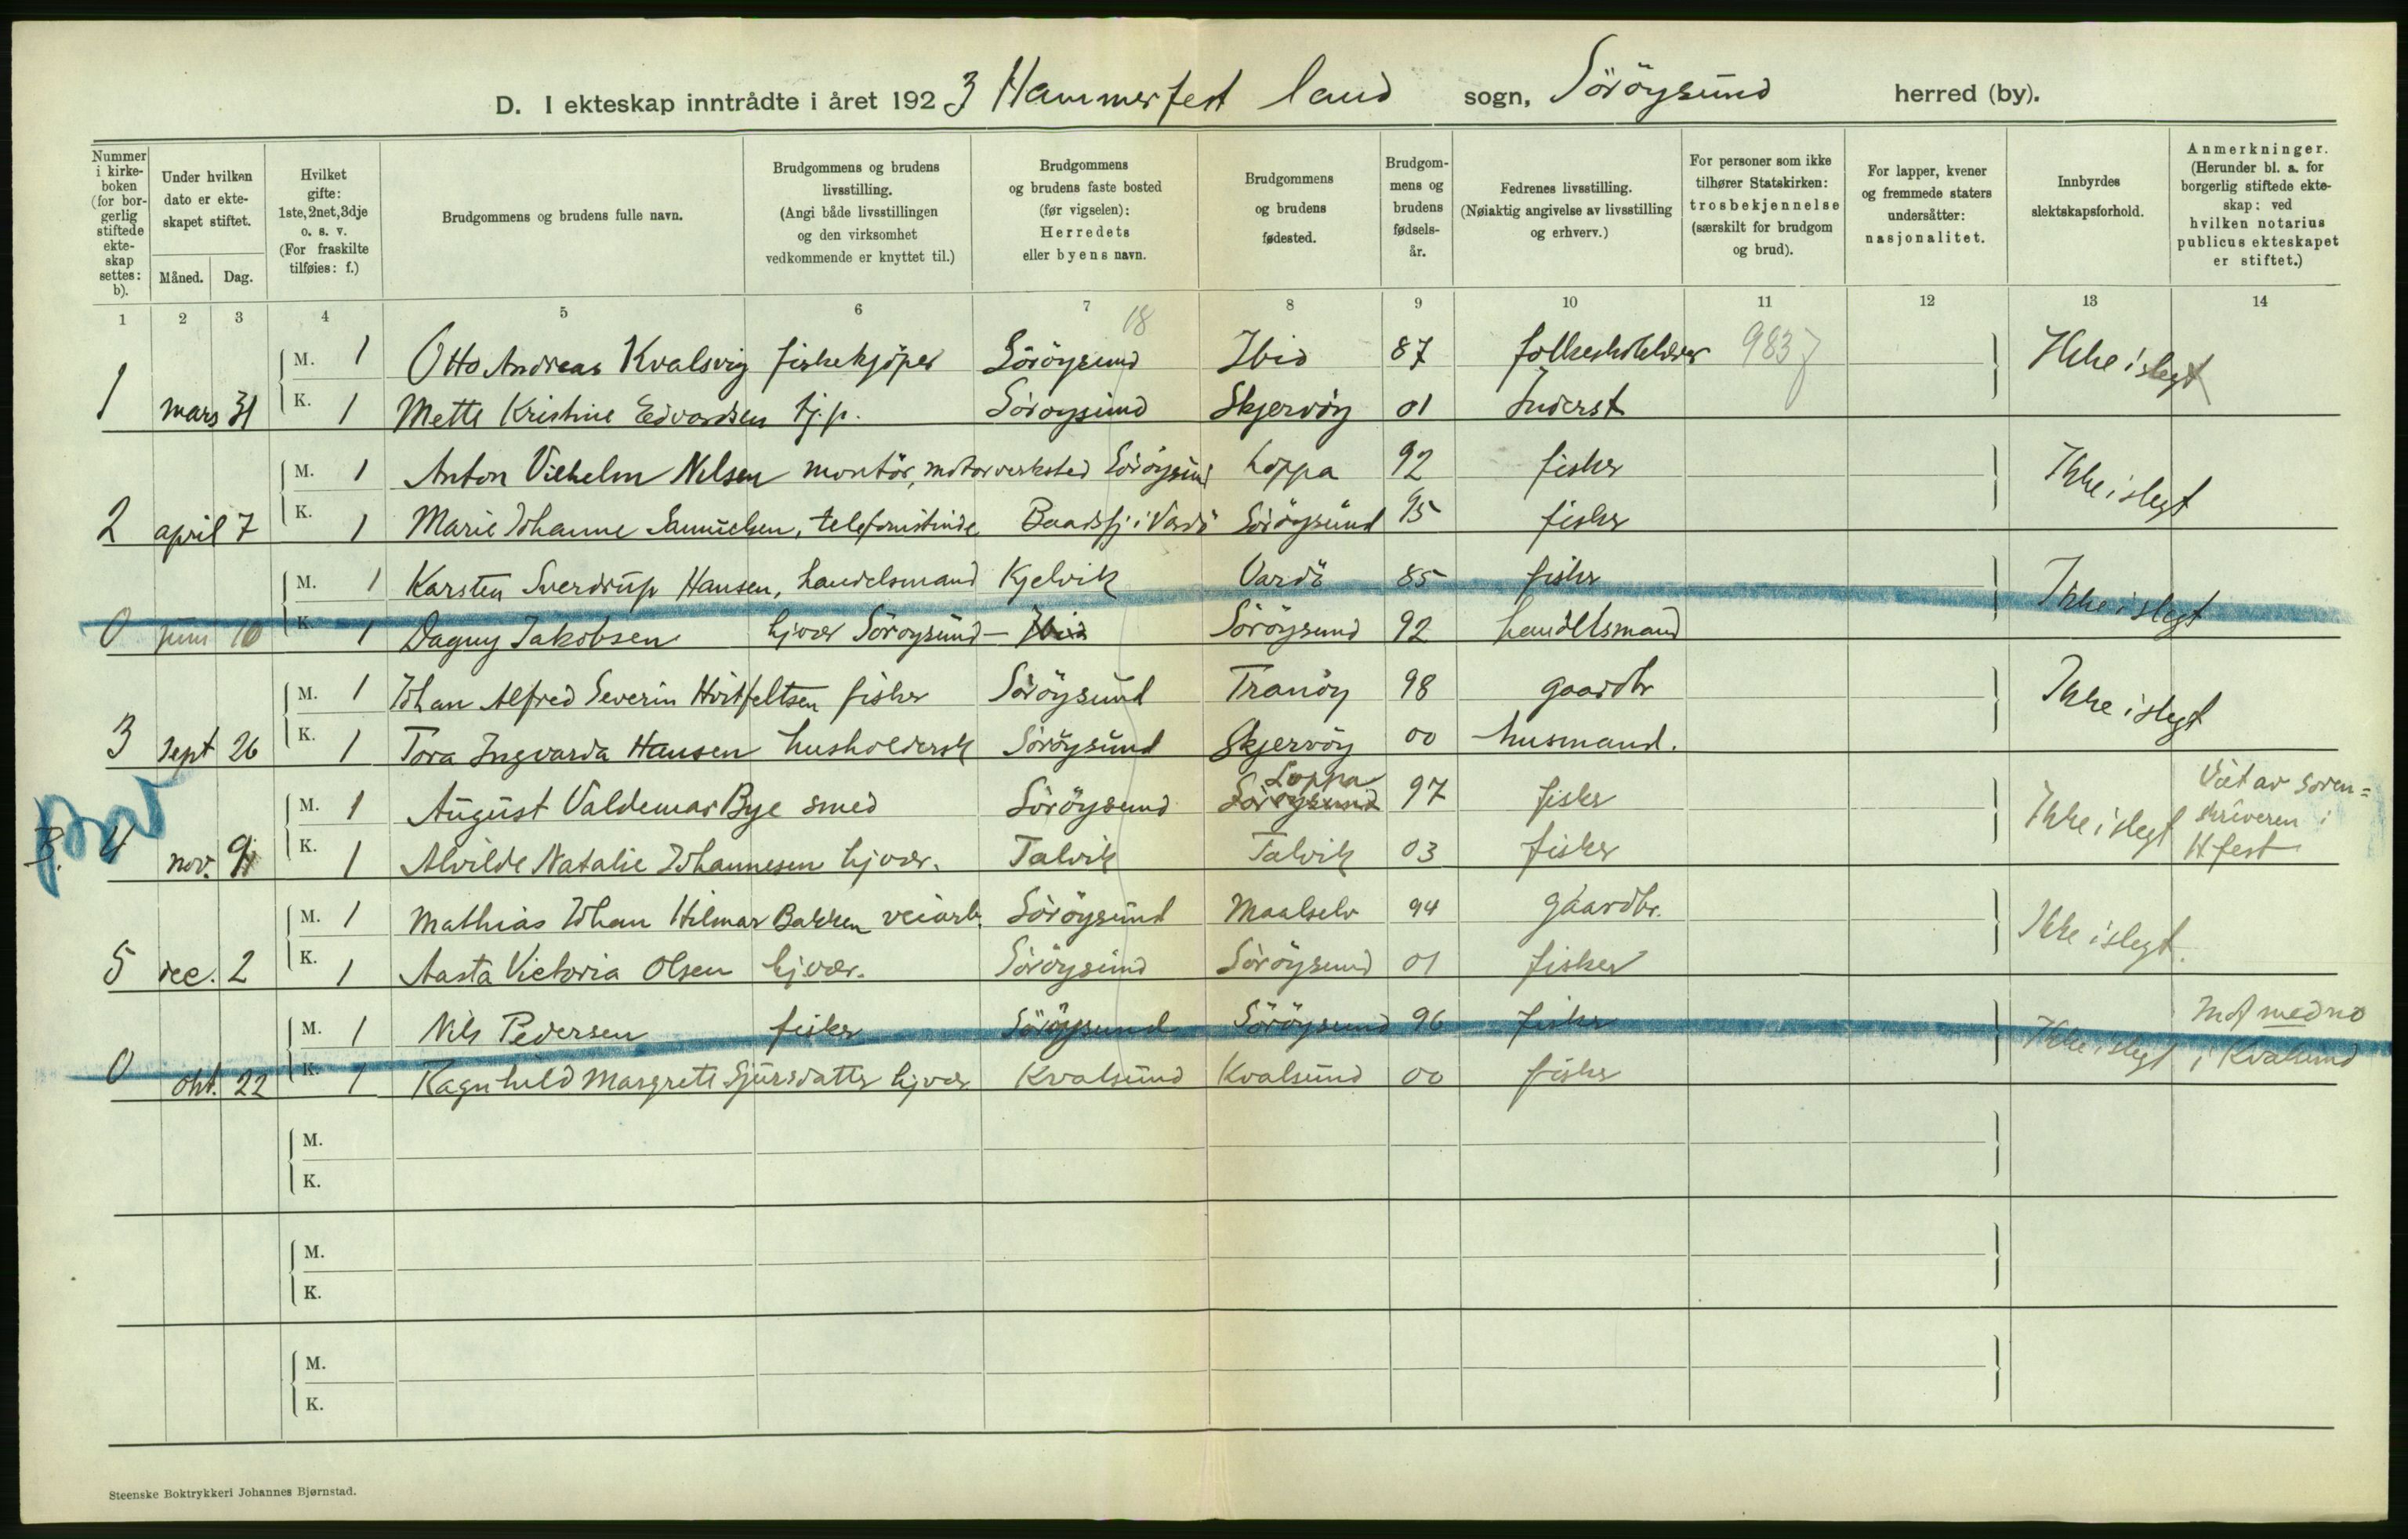 D. I ekteskap inntrådte i året 1923 Hammerfest land sogn, Söröysund herred (by).
Nummer i kirkeboken (for borgerlig stiftede ekteskap settes: b).
Under hvilken dato er ekteskapet stiftet.
Måned. Dag.
Hvilket gifte: 1ste, 2net, 3dje o. s. v. (For fraskilte tilføies: f.)
Brudgommens og brudens fulle navn.
Brudgommens og brudens livsstilling. (Angi både livsstillingen og den virksomhet vedkommende er knyttet til.)
Brudgommens og brudens faste bosted (før vigselen): Herredets eller byens navn.
Brudgommens og brudens fødested.
Brudgommens og brudens fødselsår.
Fedrenes livsstilling. (Nøiaktig angivelse av livsstilling og erhverv.)
For personer som ikke tilhører Statskirken: trosbekjennelse (særskilt for brudgom og brud).
For lapper, kvener og fremmede staters undersåtter: nasjonalitet.
Innbyrdes slektskapsforhold.
Anmerkninger. (Herunder bl. a. for borgerlig stiftede ekteskap: ved hvilken notarius publicus ekteskapet er stiftet.)
1 2 3 4 5 6 7 8 9 10 11 12 13 14
18
M. 1 Otto Andreas Kvalsvig fiskekjöper Söröysund Ibid 87 983 Ikke i slegt
1 mars 31 K. 1 Mette Kristine Edvardsen tj.p. Söröysund Skjervöy 01 Inderst
M. 1 Anton Vilhelm Nilsen montör, motorverksted Söröysund Loppa 92 fisker Ikke i slegt
2 april 7 K. 1 Marie Johanne Samuelsen, telefonistinde Baadsfj i Vardö Söröysund 95 fisker
M. 1 Karsten Sverdrup Hansen, handelsmand Kjelvik Vardö 85 fisker Ikke i slegt
0 juni 10 K. 1 Dagny Jakobsen hjvær Söröysund - Ibid Söröysund 92 handelsmand
M. 1 Johan Alfred Severin Hvitfeltsen fisker Söröysund Tranöy 98 gaardbr Ikke i slegt
3 sept 26 K. 1 Tora Ingvarda Hansen husholdersk Söröysund Skjervöy 00 husmand.
M. 1 August Valdemar Bye smed Söröysund Söröysund Loppa 97 fisker Ikke i slegt Viet av Soren=
skriveren i
B. 4 nov. 9 K. 1 Alvilde Natalie Johannesen hjvær. Talvik Talvik 03 fisker Hfest
M. 1 Mathias Johan Hilmar Bakken veiarb. Söröysund Maalselv 94 gaardbr. Ikke i slegt.
5 dec. 2 K. 1 Aasta Victoria Olsen hjvær. Söröysund Söröysund 01 fisker
M. 1 Nils Pedersen fisker Söröysund Söröysund 96 fisker Ikke i slegt
0 okt. 22 K. 1 Ragnhild Margrete Sjursdatter hjvær Kvalsund Kvalsund 00 fisker i Kvalsund
M.
K.
M.
K.
M.
K.
Steenske Boktrykkeri Johannes Bjørnstad.